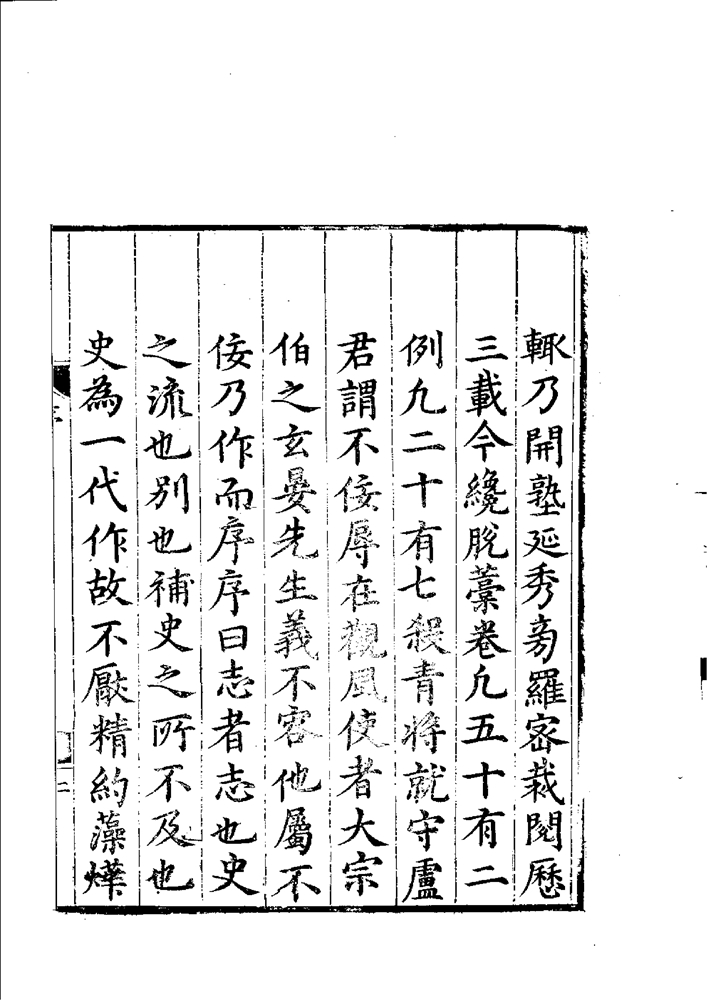 輙乃開塾延秀旁羅密栽閱歷
三載今纔脫藁卷凢五十有二
例凢二十有七殺青將就守盧
君謂不佞辱在觀風使者大宗
伯之玄晏先生義不容他屬不
佞乃作而序序曰志者志也史
之流也別也補史之所不及也
史為一代作故不厭精約藻燁